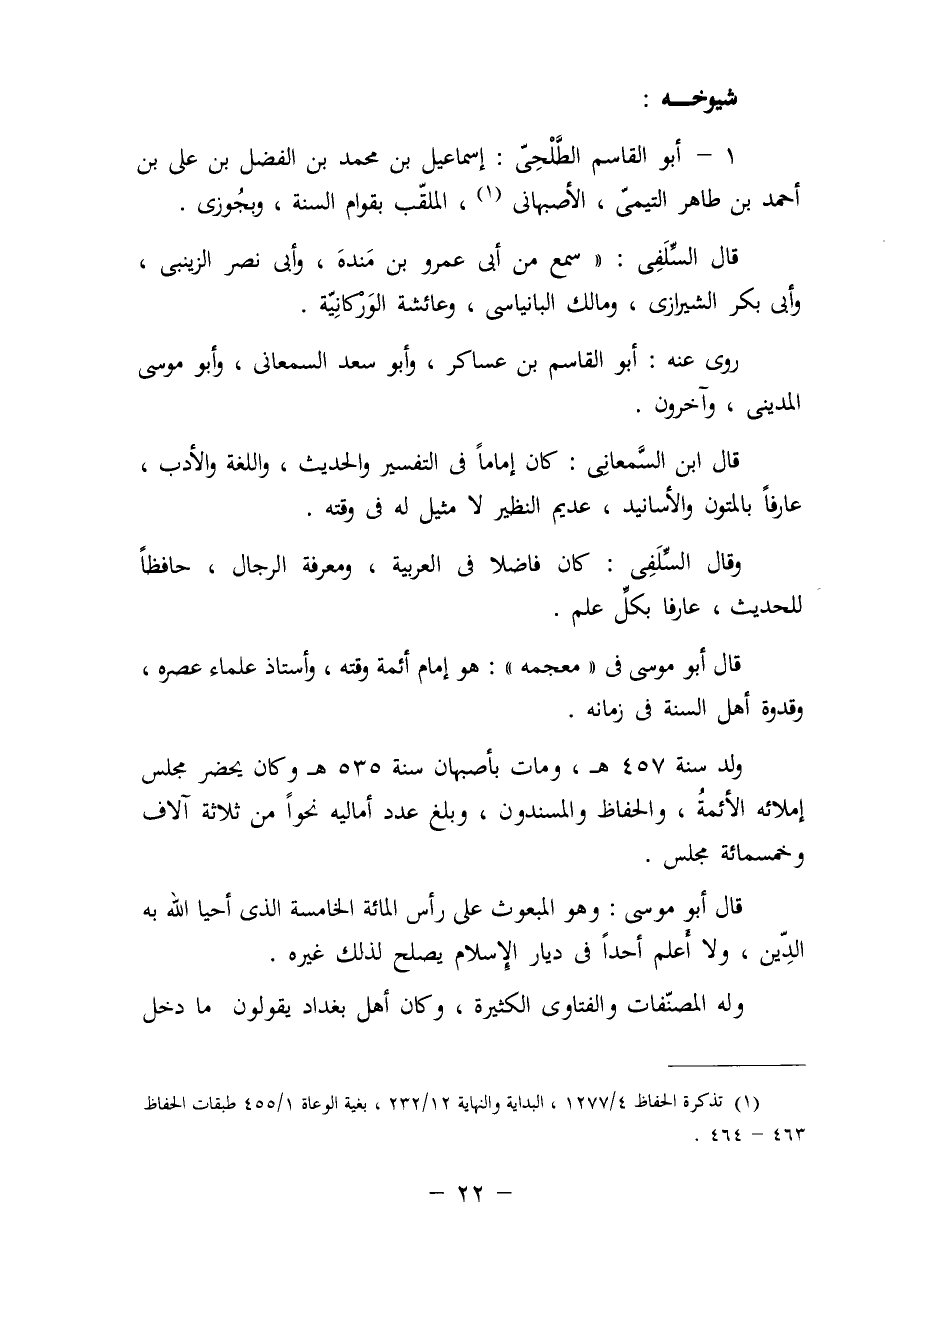 شيوخـــه :
١ – أبو القاسم الطَّلْحِىّ : إسماعيل بن محمد بن الفضل بن على بن
أحمد بن طاهر التيمىّ ، الأصبهانى (١) ، الملقّب بقوام السنة ، وبجُوزى .
قال السِّلَفِى : « سمع من أبى عمرو بن مَندهَ ، وأبى نصر الزينبى ،
وأبى بكر الشيرازى ، ومالك البانياسى ، وعائشة الوَرْكانِيّة .
روى عنه : أبو القاسم بن عساكر ، وأبو سعد السمعانى ، وأبو موسى
المدينى ، وآخرون .
قال ابن السَّمعانِى : كان إماماً فى التفسير والحديث ، واللغة والأدب ،
عارفاً بالمتون والأسانيد ، عديم النظير لا مثيل له فى وقته .
وقال السِّلَفِى : كان فاضلا فى العربية ، ومعرفة الرجال ، حافظاً
للحديث ، عارفا بكلِّ علم .
قال أبو موسى فى « معجمه » : هو إمام أئمة وقته ، وأستاذ علماء عصره ،
وقدوة أهل السنة فى زمانه .
ولد سنة ٤٥٧ هـ ، ومات بأصبهان سنة ٥٣٥ هـ وكان يحضر مجلس
إملائه الأئمةُ ، والحفاظ والمسندون ، وبلغ عدد أماليه نحواً من ثلاثة آلاف
وخمسمائة مجلس .
قال أبو موسى : وهو المبعوث على رأس المائة الخامسة الذى أحيا الله به
الدِّين ، ولا أَعلم أحداً فى ديار الإِسلام يصلح لذلك غيره .
وله المصنّفات والفتاوى الكثيرة ، وكان أهل بغداد يقولون ما دخل
(١) تذكرة الحفاظ ١٢٧٧/٤ ، البداية والنهاية ٢٣٢/١٢ ، بغية الوعاة ٤٥٥/١ طبقات الحفاظ
٤٦٣ – ٤٦٤ .
– ٢٢ –